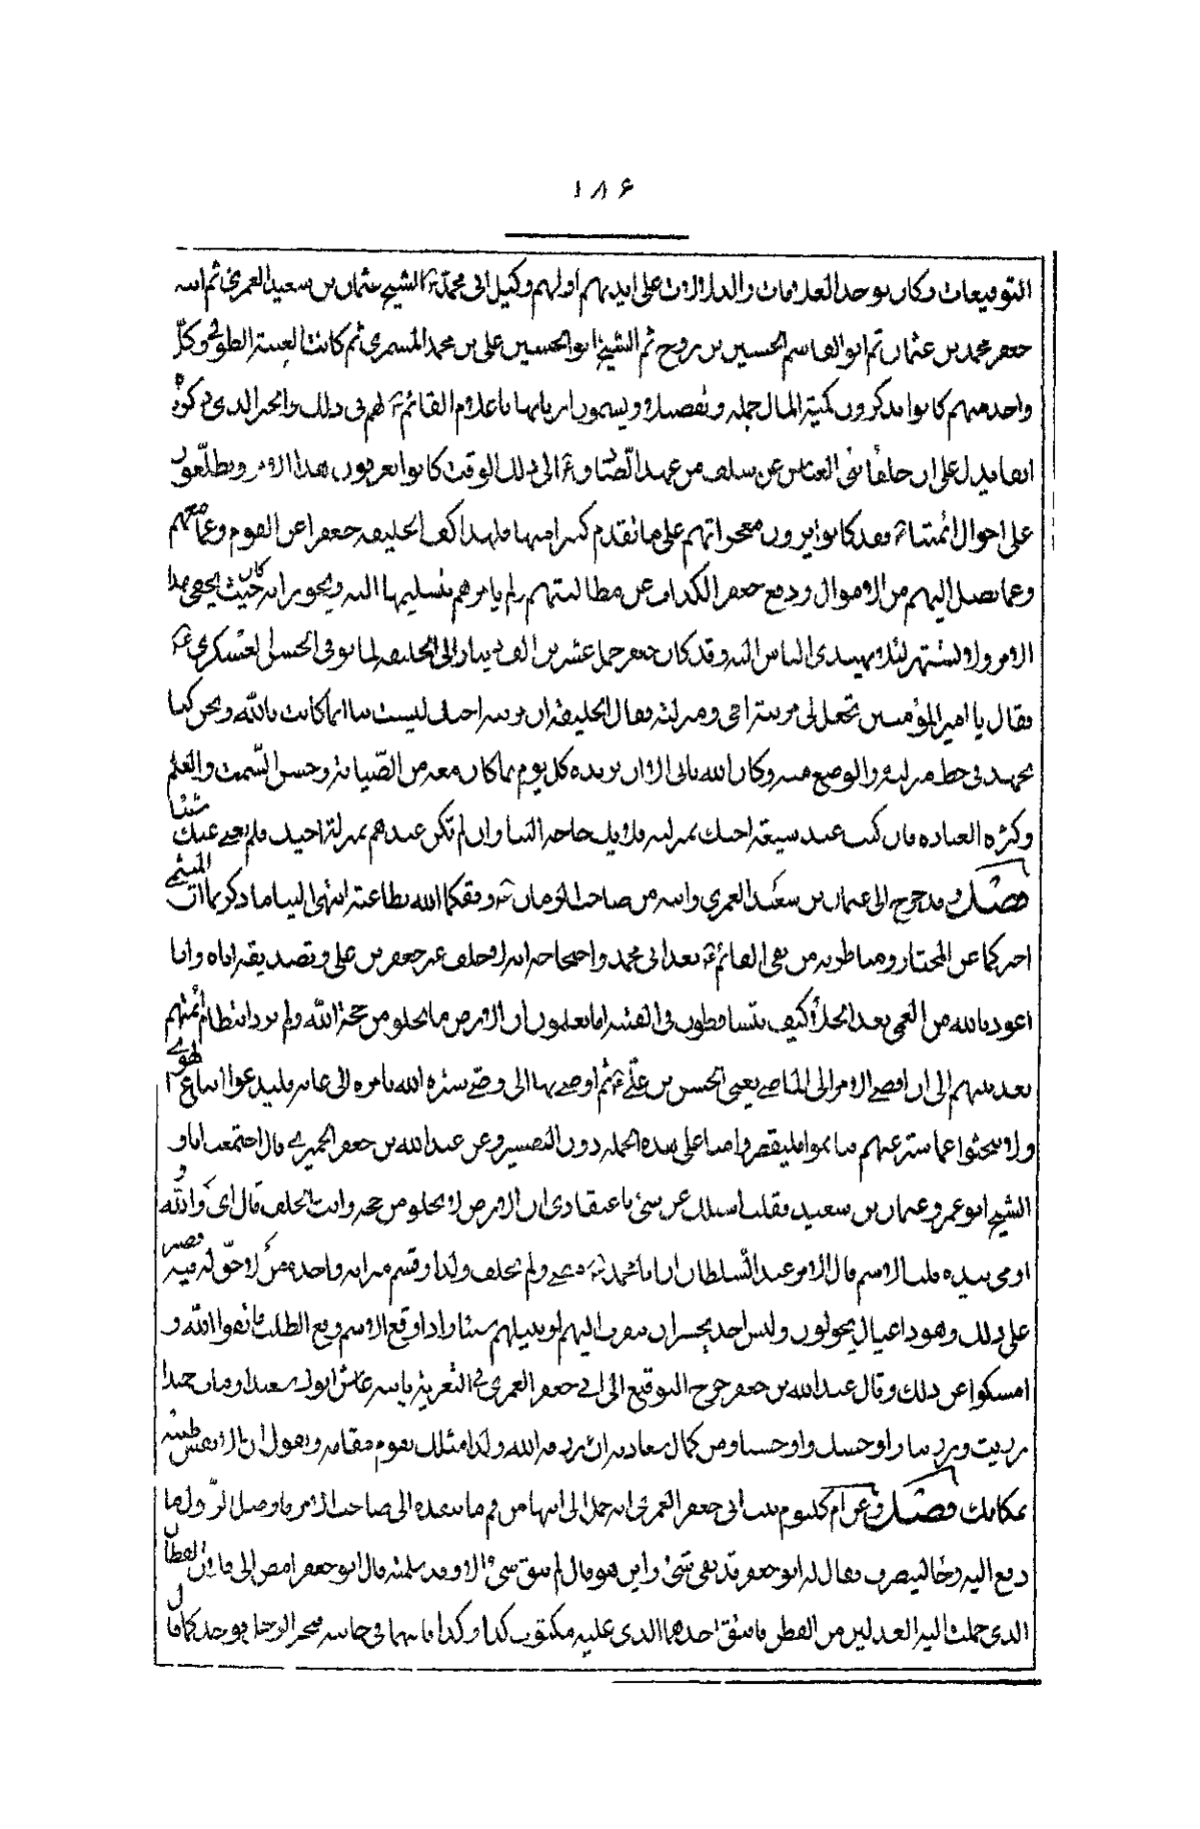 ١٨۶
التوقيعات وكان يوجد العلامات والدلالات على ايديهم اولهم وكيل ابى محمد الشيخ عثمان بن سعيد العمرى ثم ابنه
جعفر محمد بن عثمان ثم ابو القاسم الحسين بن روح ثم الشيخ ابو الحسين على بن محمد السمرى ثم كانت الغيبة الطولى وكل
واحد منهم كانوا يذكرون كمية المال جملة وتفصيلا ويسمون اربابها باعلام القائم لهم فى ذلك والخبر الذى ذكره
ايضا يدل على ان خلفاء بنى العباس عن سلف من عهد الصادق الى ذلك الوقت كانوا يعرفون هذا الامر ويطلعون
على احوال ائمتنا فقد كانوا يرون معجزاتهم على ما تقدم كثيرا منها فلهذا كف الخليفة جعفرا عن القوم وعما معهم
وعما يصل اليهم من الاموال ودفع جعفر الكذاب عن مطالبتهم ولم يامرهم بتسليمها اليه ويجوز انه كان حيث يخفى هذا
الامر ولا يشتهر لئلا يهتدى الناس اليه وقد كان جعفر حمل عشرين الف دينار الى الخليفة لما توفى الحسن العسكرى
فقال يا امير المؤمنين تجعل لى مرتبة اخى ومنزلته فقال الخليفة ان مرتبة اخيك ليست بنا انما كانت بالله ونحن كنا
نجهد فى حط منزلته والوضع منه وكان الله يابى الا ان يزيده كل يوم بما كان معه من الصيانة وحسن السمت والعلم
وكثرة العبادة فان كنت عند شيعة اخيك بمنزلته فلا بك حاجة الينا وان لم تكن عندهم بمنزلة اخيك فلم يجىء عنك شيئا
فصل وقد خرج الى عثمان بن سعيد العمرى وابنه من صاحب الزمان وفقكما الله بطاعته انتهى الينا ما ذكرتما ان الميثمى
اخبركما عن المختار ومناظرته من نفى القائم بعد ابى محمد واحتجاجه انه لا خلف غير جعفر بن على وتصديقه اياه وانا
اعوذ بالله من العمى بعد الجلاء كيف يتساقطون فى الفتنة اما يعلمون ان الارض ما تخلو من حجة الله ولم يروا انتظام ائمتهم
بعد نبيهم الى ان افضى الامر الى الماضى يعنى الحسن بن على ثم اوصى بها الى وصى ستره الله بامره الى غاية فليدعوا اتباع الهوى
ولا يبحثوا عما ستر عنهم فياثموا فليقصروا منا على هذه الجملة دون التفسير وعن عبد الله بن جعفر الحميرى قال اجتمعت انا و
الشيخ ابو عمرو عثمان بن سعيد فقلت اسئلك عن شئ باعتقادى ان الارض لا تخلو من حجة وانت الخلف قال اى والله و
اومى بيده قلت الاسم قال الامر عند السلطان ان ابا محمد مضى ولم يخلف ولدا وقسم ميراثه واخذه من لا حق له فيه فصبر
على ذلك وهو ذا عيال يجولون وليس احد يجسر ان يتعرف اليهم او ينيلهم شيئا واذا وقع الاسم وقع الطلب فاتقوا الله و
امسكوا عن ذلك وقال عبد الله بن جعفر خرج التوقيع الى ابى جعفر العمرى فى التعزية بابيه عاش ابوك سعيدا ومات حميدا
رزيت ورزينا واوحشك واوحشنا ومن كمال سعادته ان رزقه الله ولدا مثلك يقوم مقامه ونقول ان الانفس طيبة
بمكانك فصل وعن ام كلثوم بنت ابى جعفر العمرى انه حمل الى ابيها من قم ما ينفذه الى صاحب الامر فاوصل الرسول ما
دفع اليه وجاء لينصرف فقال له ابو جعفر قد بقى شئ واين هو قال لم يبق شئ الا وقد سلمته قال ابو جعفر امض الى فلان القطان
الذى حملت اليه العدلين من القطن فافتق احدهما الذى عليه مكتوب كذا وكذا فانها فى جانبه فتحير الرجل فوجد كما قال